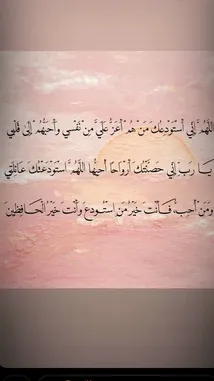 اللَّهُمَّ إِنِّي أَسْتَوْدِعُكَ مَنْ هُمْ أَعَزُّ عَلَيَّ مِنْ نَفْسِي وَأَحَبُّهُمْ إِلَى قَلْبِي
يَا رَبِّ إِنِّي حَصَّنْتُكَ أَرْوَاحًا أُحِبُّهَا اللَّهُمَّ اسْتَوْدَعْتُكَ عَائِلَتِي
وَمَنْ أُحِبُّ، فَأَنْتَ خَيْرُ مَنِ اسْتُودِعَ وَأَنْتَ خَيْرُ الْحَافِظِينَ